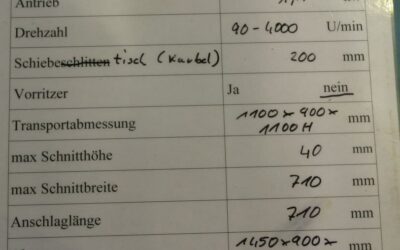 Antrieb
Drehzahl 90-4000 U/min
Schiebeschlitten tisch (Kurbel) 200 mm
Vorritzer Ja nein
Transportabmessung 1100x900x mm
1100H
max Schnitthöhe 40 mm
max Schnittbreite 710 mm
Anschlaglänge 710 mm
1450x900x mm